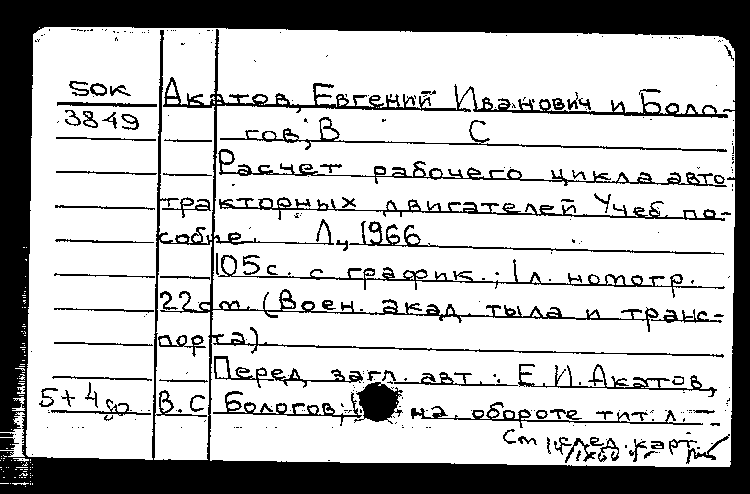 50к Акатов, Евгений Иванович и Боло-
3849 гов, В С
Расчет рабочего цикла авто-
тракторных двигателей. Учеб. по-
собие. Л., 1966.
105 с. с график.; 1 л. номогр.
22 см. (Воен. акад. тыла и транс-
порта).
Перед загл. авт.: Е. И. Акатов,
5+4 В. С Бологов; на обороте тит. л. –
См след. карт.